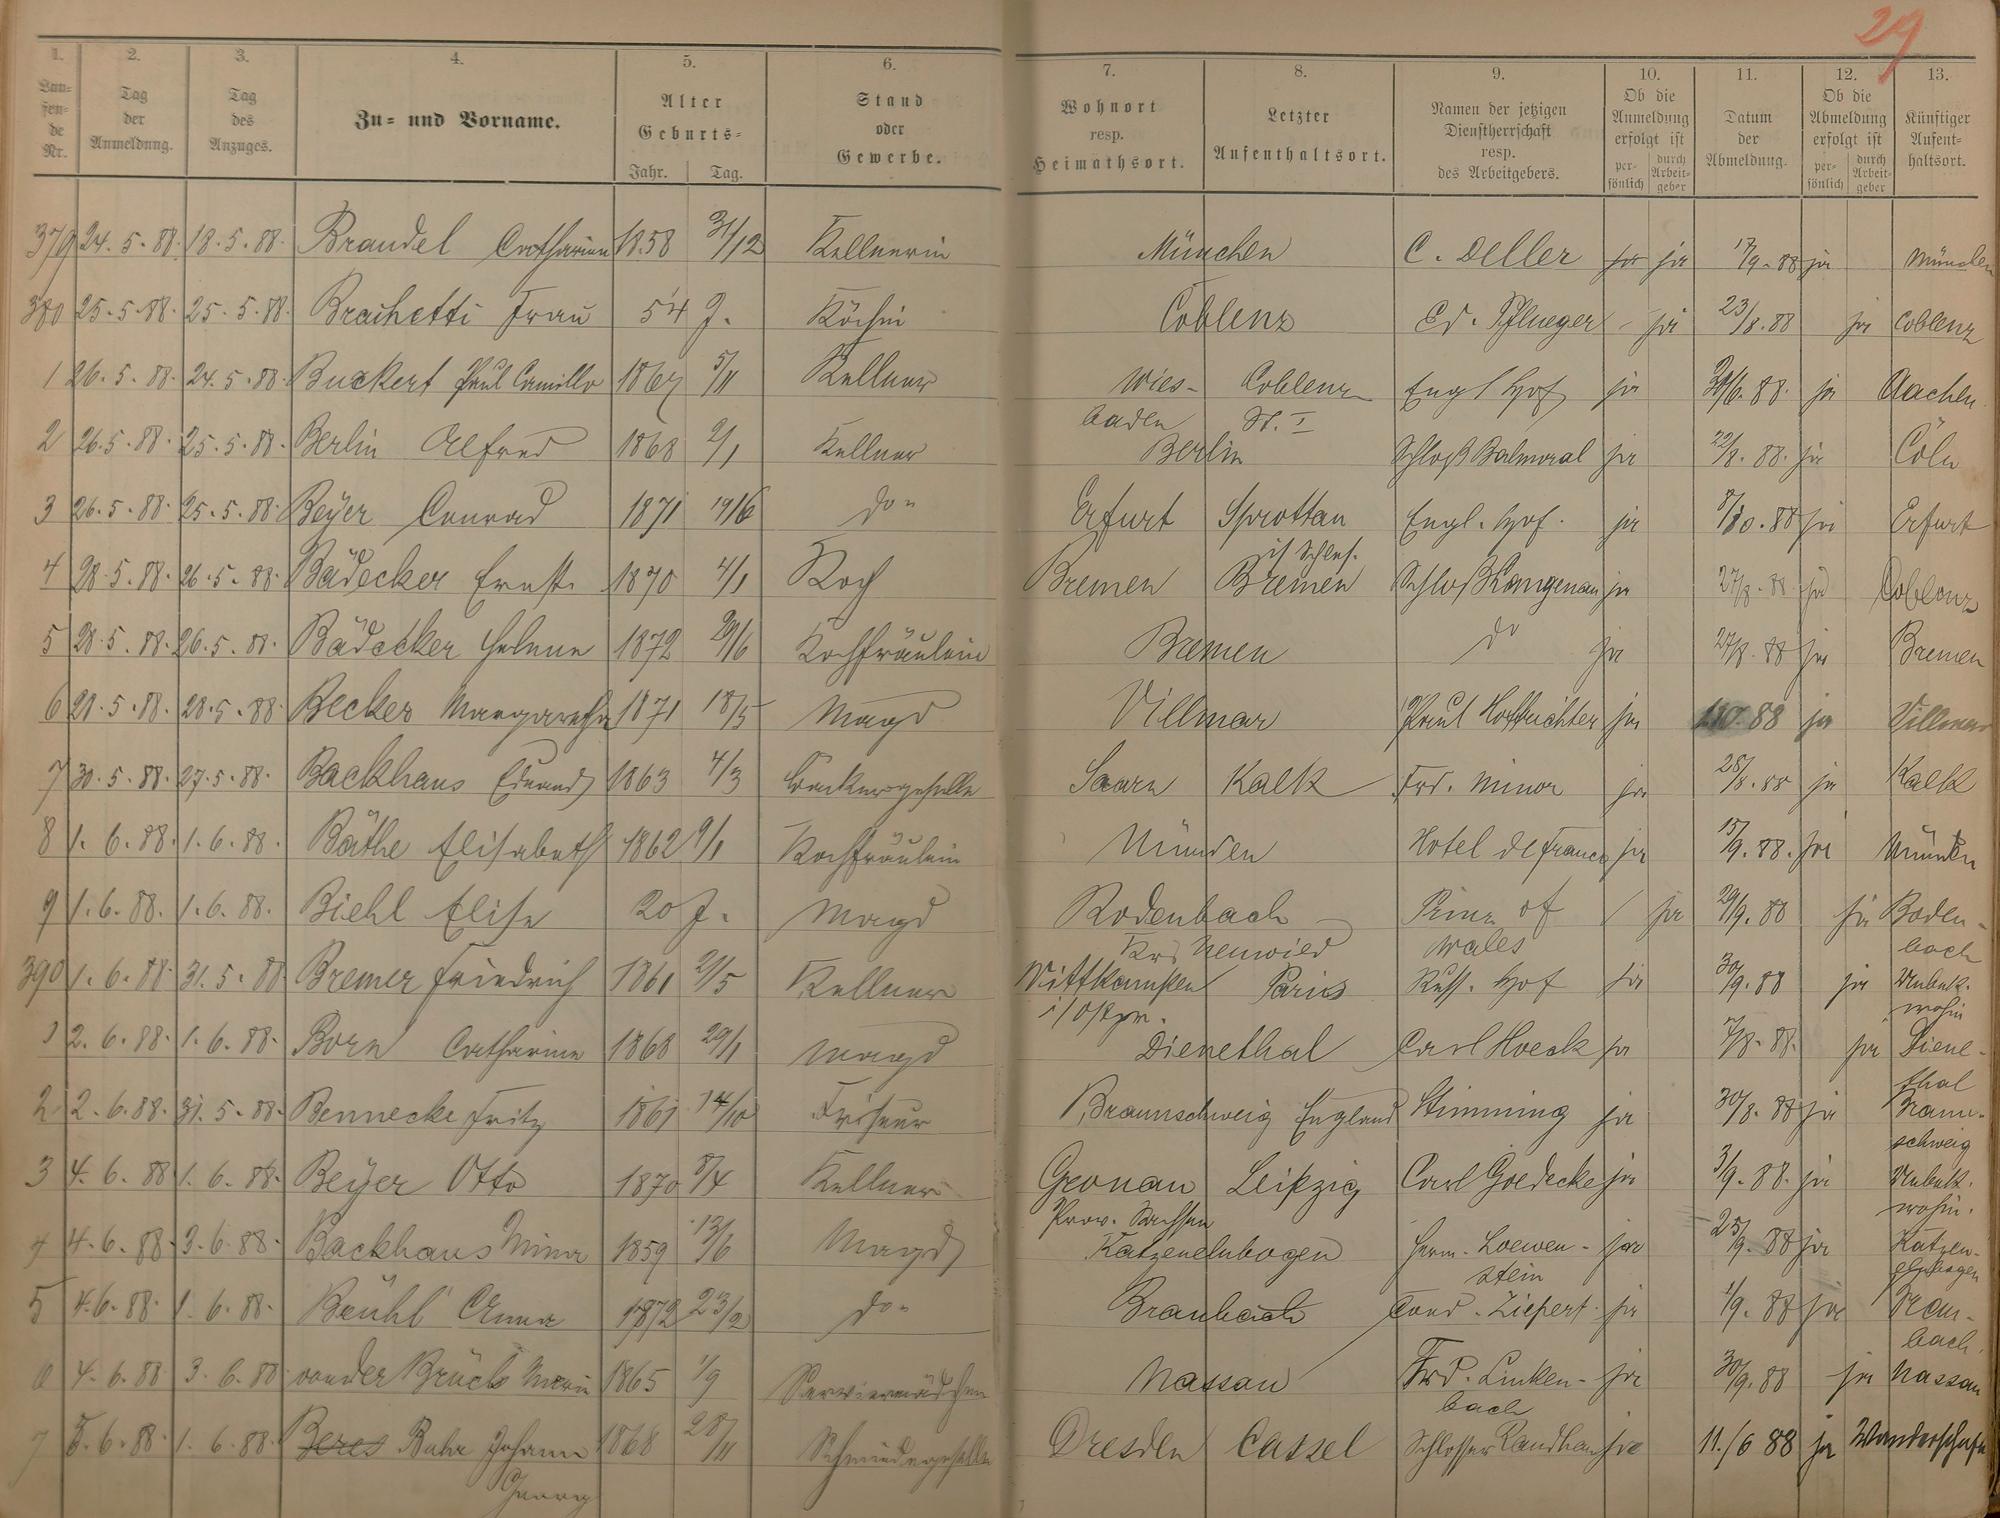 29
1. 2. 3. 4. 5. 6. 7. 8. 9. 10. 11. 12. 13.
Lau-fen-de Nr. Tag der Anmeldung. Tag des Anzuges. Zu- und Vorname. Alter Geburts- Jahr. Tag. Stand oder Gewerbe. Wohnort resp. Heimathsort. Letzter Aufenthaltsort. Namen der jetzigen Dienstherrschaft resp. des Arbeitgebers. Ob die Anmeldung erfolgt ist per-sönlich durch Arbeit-geber Datum der Abmeldung. Ob die Abmeldung erfolgt ist per-sönlich durch Arbeit-geber Künftiger Aufent-haltsort.
379 24. 5. 88. 18. 5. 88. Brandel Catharina 1858 31/12 Kellnerin München C. Deller ja ja 17/9. 88 ja München
380 25. 5. 88. 25. 5. 88. Frau 54 J. Köchin Coblenz Ed. Pflueger - ja 23/8. 88 ja Coblenz
1 26. 5. 88. 24. 5. 88. Buckert Paul Camillo 1867 5/11 Kellner Wies- Coblenz Engl Hof ja /6. 88. ja Aachen
baden St. I
2 26. 5. 88. 25. 5. 88. Berlin Alfred 1868 2/1 Kellner Berlin Schloß Balmoral ja 22/8. 88. ja Cöln
3 26. 5. 88. 25. 5. 88. Beyer Conrad 1871 19/6 do Erfurt Sprottau Engl. Hof. ja 8/10. 88 ja Erfurt
i/ Schles.
4 28. 5. 88. 26. 5. 88. Bädecker Ernst 1870 4/1 Koch Bremen Bremen Schloß Langenau ja 27/8. 88 ja Coblenz
5 28. 5. 88. 26. 5. 88. Bädecker Helene 1872 29/6 Kochfräulein Bremen do ja 27/8. 88 ja Bremen
6 28. 5. 88. 28. 5. 88 Becker Margaretha 1871 18/5 Magd Villmar Paul Hofrichter ja 88 ja Villmar
7 30. 5. 88. 27. 5. 88. Backhaus Eduard 1863 4/3 Saarn Kalk Frd. Minor ja 28/8. 88 ja Kalk
8 1. 6. 88. 1. 6. 88. Bäthe Elisabeth 1862 9/1 Kochfräulein Münden Hotel de France ja 15/9. 88. ja Münden
9 1. 6. 88. 1. 6. 88. Biehl Elise 20 J. Magd Rodenbach Prinz of / ja 29/9. 88 ja Roden-
Krs Neuwied Wales bach
390 1. 6. 88. 31. 5. 88 Bremer Friedrich 1861 21/5 Kellner Wittkampen Paris Russ. Hof ja 30/9. 88 ja Unbek.
i/Ostpr. wohin
1 2. 6. 88. 1. 6. 88. Born Catharine 1868 29/1 Magd Dienethal Carl Hoeck ja 7/8. 88. ja Diene-
thal
2 2. 6. 88. 31. 5. 88. Bennecke Fritz 1861 14/10 Friseur Braunschweig England Stimming ja 30/8. 88 ja Braun-
schweig
3 4. 6. 88 1. 6. 88. Beyer Otto 1870 8/4 Kellner Leipzig Carl Goedecke ja 3/9. 88. ja Unbek.
Prov. Sachsen wohin.
4 4. 6. 88. 3. 6. 88. Backhaus Mina 1859 13/6 Magd Katzenelnbogen Herm. Loewen- ja 25/9. 88 ja Katzen-
stein elnbogen
5 4. 6. 88. 1. 6. 88. Brühl Anna 1872 23/2 do Braubach Cond. Ziepert ja 1/9. 88 ja Brau-
bach
6 4. 6. 88 3. 6. 88. von der Brück Marie 1865 1/9 Serviermädchen Nassau Frd. Linken- ja 30/9. 88 ja Nassau
bach
7 5. 6. 88. 1. 6. 88. Beres Bahr Johann 1868 28/11 Schmiedegeselle Dresden Cassel Schlosser Landhaus ja 11./6 88 ja Wanderschaft
Georg